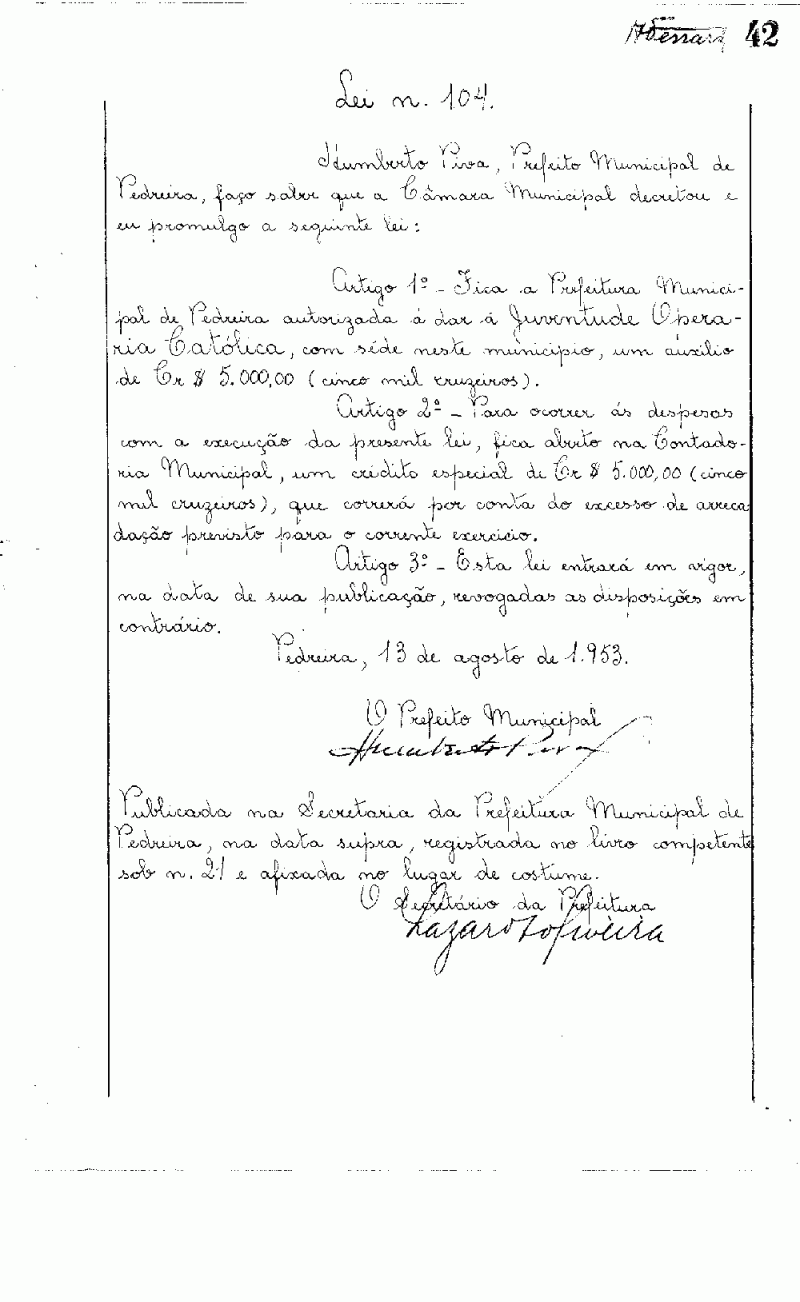 42
Lei n. 104.
Humberto Piva, Prefeito Municipal de
Pedreira, faço saber que a Câmara Municipal decretou e
eu promulgo a seguinte lei:
Artigo 1º - Fica a Prefeitura Munici-
pal de Pedreira autorizada á dar á Juventude Opera-
ria Católica, com séde neste município, um auxílio
de Cr $ 5.000,00 (cinco mil cruzeiros).
Artigo 2º - Para ocorrer ás despesas
com a execução da presente lei, fica aberto na Contado-
ria Municipal, um crédito especial de Cr $ 5.000,00 (cinco
mil cruzeiros), que correrá por conta do excesso de arreca
dação previsto para o corrente exercicio.
Artigo 3º - Esta lei entrará em vigor,
na data de sua publicação, revogadas as disposições em
contrário.
Pedreira, 13 de agosto de 1.953.
O Prefeito Municipal
Humberto Piva
Publicada na Secretaria da Prefeitura Municipal de
Pedreira, na data supra, registrada no livro competente
sob n. 21 e afixada no lugar de costume.
O Secretário da Prefeitura
Lazaro